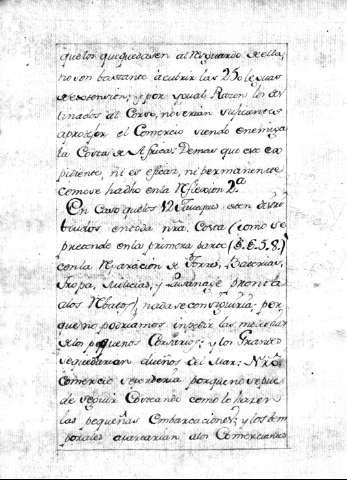 que los que quedasen al Resguardo de ella,
no son bastante à cubrir las 250 leguas
de extension; y por ygual Razon los des
tinados al Corso, no serian suficientes
a protejer el Comercio siendo enemiga
la Costa de Africa: Demas que este ex
pediente, ni es eficaz, ni permanente
como se ha dho en la Reflexion 2.ª
En Caso que los 12 Jaueques esten distri
buidos en toda nrã. Costa (como se
pretende en la primera parte
con la Reparacion de Torres, Baterias,
Tropa, Milicias, y Paisanaje pronta
a los Rebatos), nada se conseguiria: por
que no podriamos impedir las
de los pequeños Corsarios; y los Grandes
se quedarian dueños del Mar: Nrõ.
Comercio se perderia porque no se puede
de seguir Costeando como lo hacen
las pequeñas Embarcaciones; y los tem
porales avararian a los Comerciantes